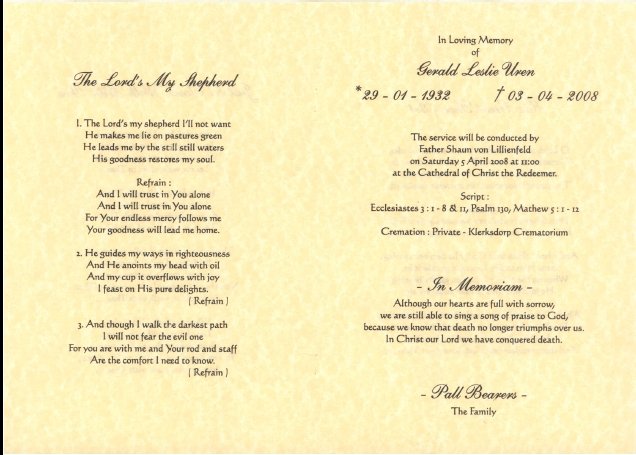 The Lord's My Shepherd
1. The Lord's my shepherd I'll not want
He makes me lie on pastures green
He leads me by the still still waters
His goodness restores my soul.
Refrain :
And I will trust in You alone
And I will trust in You alone
For Your endless mercy follows me
Your goodness will lead me home.
2. He guides my ways in righteousness
And He anoints my head with oil
And my cup it overflows with joy
I feast on His pure delights.
( Refrain )
3. And though I walk the darkest path
I will not fear the evil one
For you are with me and Your rod and staff
Are the comfort I need to know.
( Refrain )
In Loving Memory
of
Gerald Leslie Uren
* 29 - 01 - 1932 † 03 - 04 - 2008
The service will be conducted by
Father Shaun von Lillienfeld
on Saturday 5 April 2008 at 11:00
at the Cathedral of Christ the Redeemer.
Script :
Ecclesiastes 3 : 1 - 8 & 11, Psalm 130, Mathew 5 : 1 - 12
Cremation : Private - Klerksdorp Crematorium
- In Memoriam -
Although our hearts are full with sorrow,
we are still able to sing a song of praise to God,
because we know that death no longer triumphs over us.
In Christ our Lord we have conquered death.
- Pall Bearers -
The Family